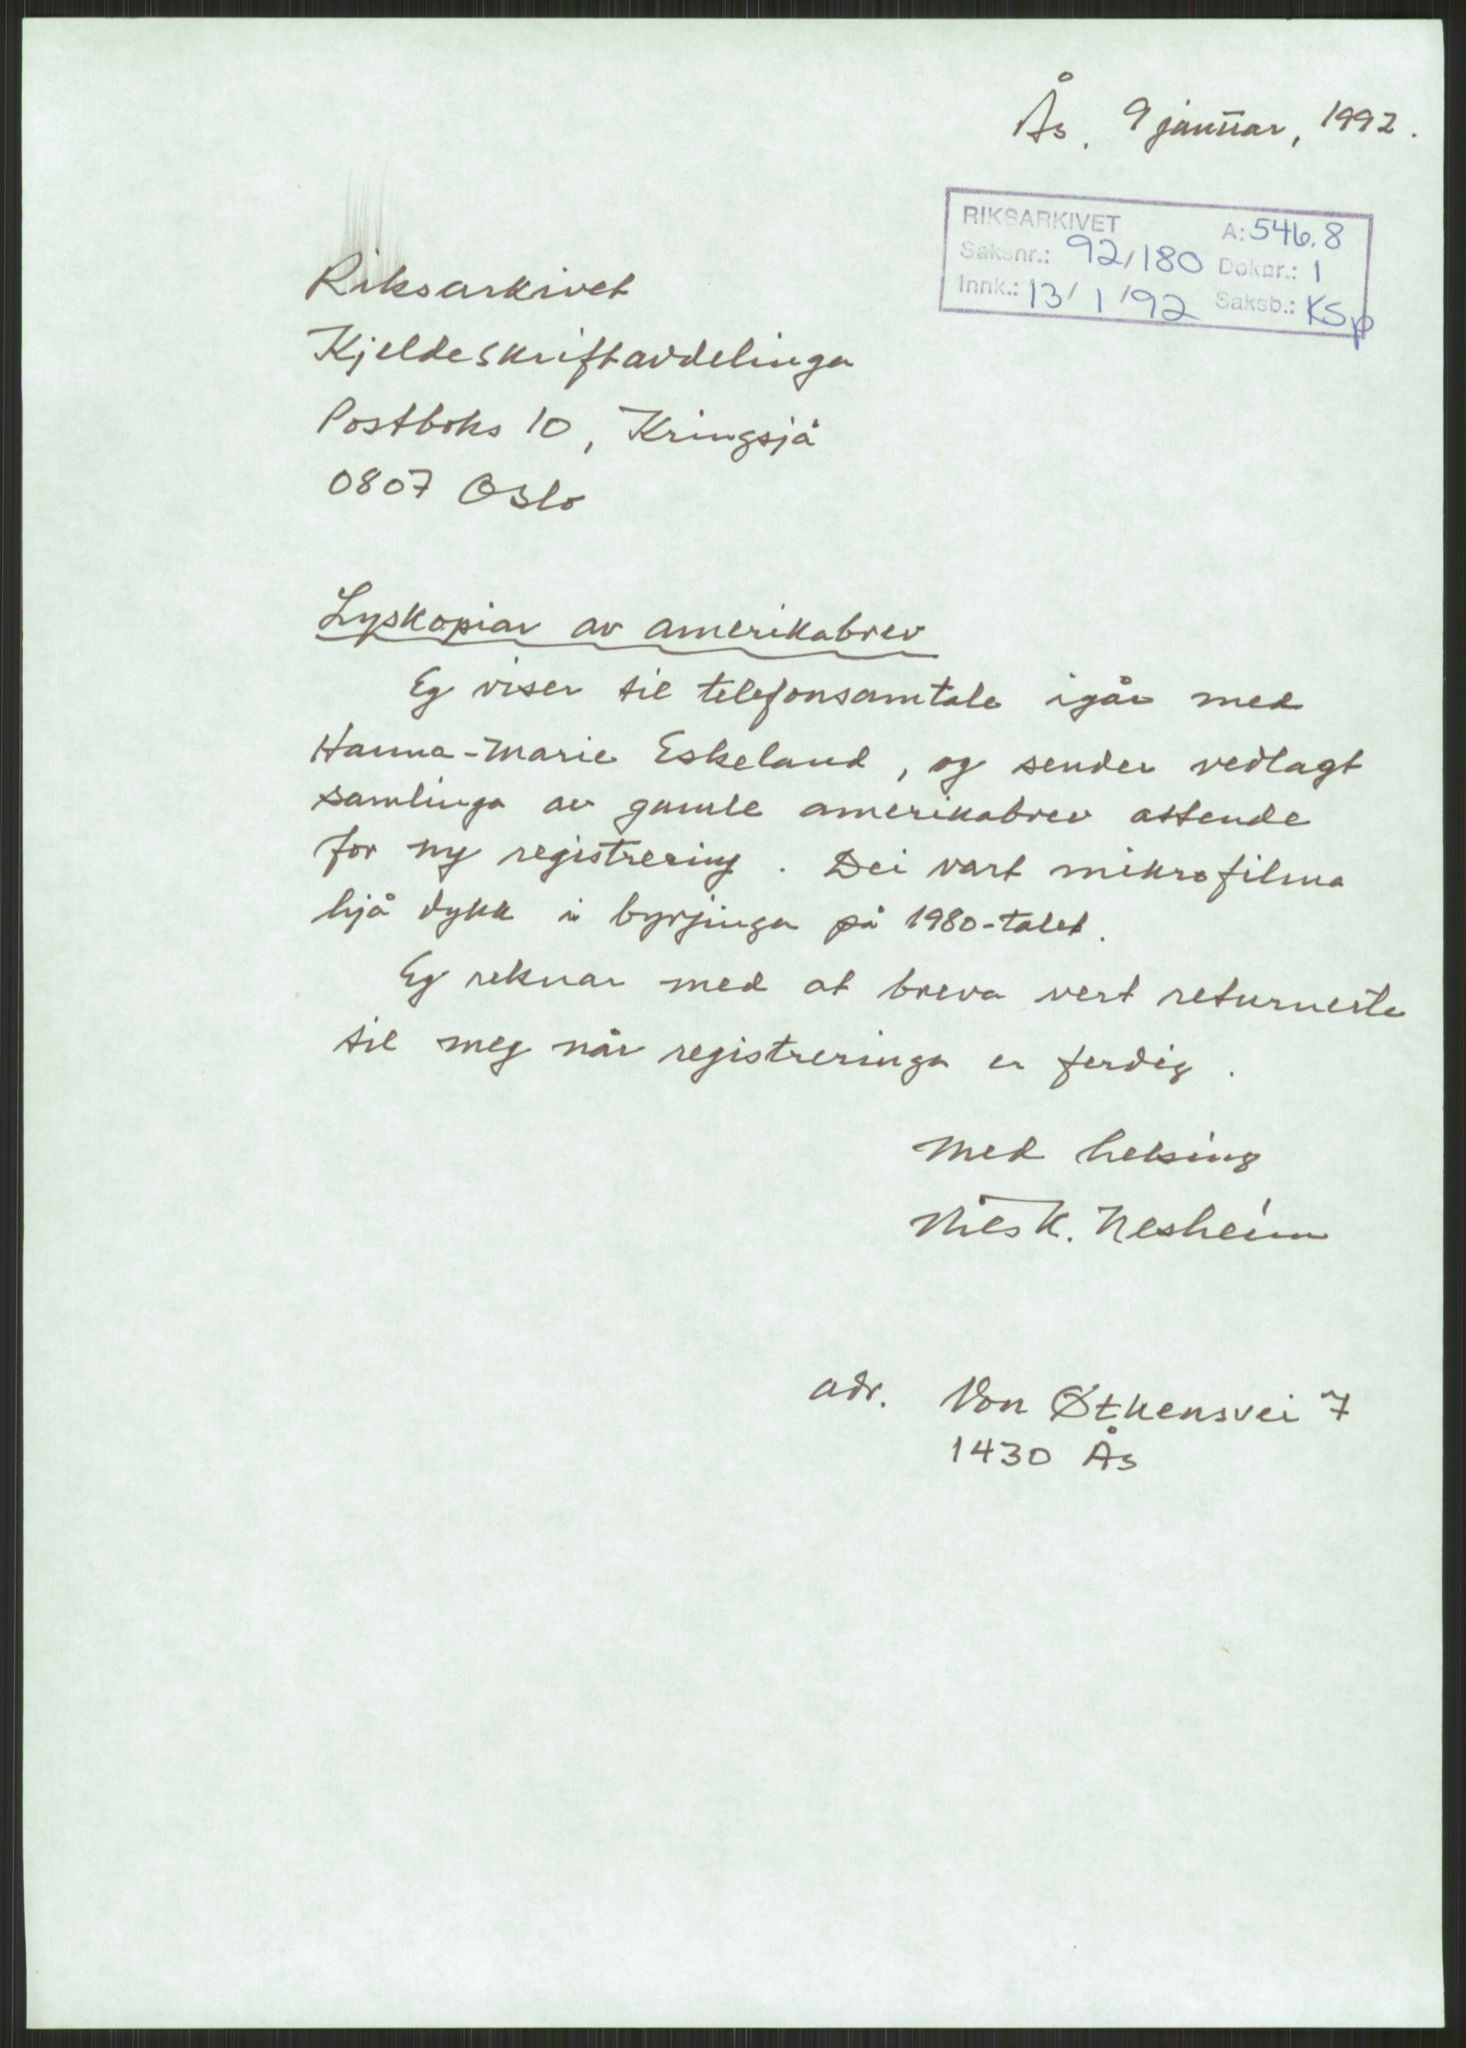 Ås, 9 januar, 1992.
RIKSARKIVET A: 546.8
Saksnr.: 92/180 Doknr.: 1
Innk.: 13/1/92 Saksb.: KSp
Riksarkivet
Kjeldeskriftavdelinga
Postboks 10, Kringsjå
0807 Oslo
Lyskopiar av amerikabrev
Eg viser til telefonsamtale igår med
Hanna-Marie Eskeland, og sender vedlagt
samlinga av gamle amerikabrev attende
for ny registrering. Dei vart mikrofilma
hjå dykk i byrjinga på 1980-talet.
Eg reknar med at breva vert returnerte
til meg når registreringa er ferdig.
Med helsing
Nils K. Nesheim
adr. Von Øtkensvei 7
1430 Ås